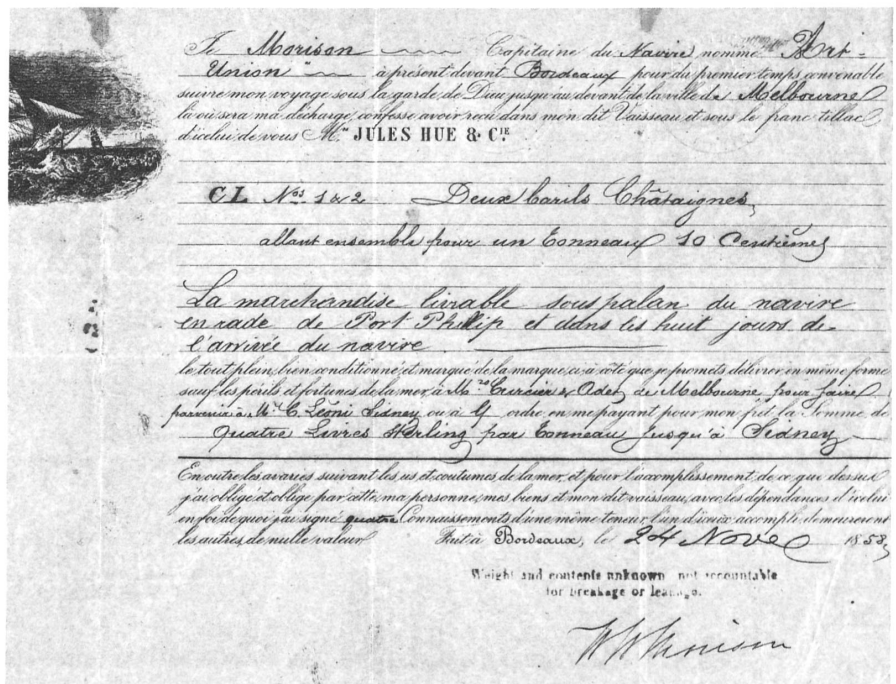 Je Morison Capitaine du Navire nommé Art-
Union" à présent devant Bordeaux pour du premier temps convenable
suivre mon voyage sous la garde de Dieu jusqu'au devant de la ville de Melbourne
là où sera ma décharge, confesse avoir reçu dans mon dit Vaisseau et sous le franc tillac
d'icelui de vous M.rs JULES HUE & C.IE
CL Nos 1 & 2 Deux barils Châtaignes,
allant ensemble pour un Tonneau 10 Centièmes
La marchandise livrable sous palan du navire
en rade de Port Phillip et dans les huit jours de
l'arrivée du navire
le tout plein, bien conditionné et marqué de la marque ci à côté que je promets délivrer en même forme
sauf les périls et fortunes de la mer, à M.rs Curcier & Adet de Melbourne pour faire
parvenir à Mr C. Léoni Sidney ou à ordre, en me payant pour mon fret la somme de
Quatre Livres Sterling par Tonneau jusqu'à Sidney
En outre les avaries suivant les us et coutumes de la mer, et pour l'accomplissement de ce que dessus
j'ai obligé et oblige par cette, ma personne, mes biens et mon dit vaisseau, avec les dépendances d'icelui
en foi de quoi j'ai signé quatre Connaissements d'une même teneur, l'un d'iceux accompli, demeureront
les autres de nulle valeur Fait à Bordeaux, le 24 Nove 1853,
Weight and contents unknown not accountable
for breakage or leakage.
Morison